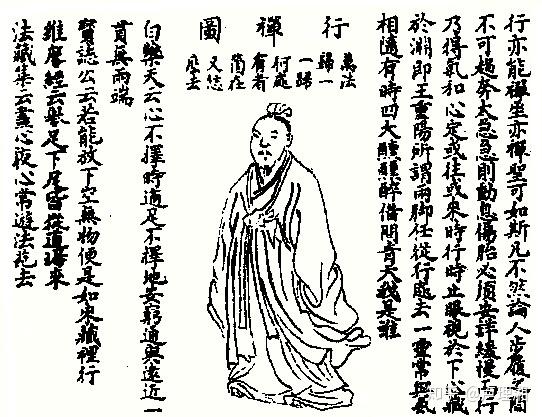 行禪圖
行亦能禪坐亦禪聖可如斯凡不然論人步履之間
不可趨奔太急急則動息傷胎必須安詳緩慢而行
乃得氣和心定或往或來時行時止眼視於下心藏
於淵即王重陽所謂兩脚任從行處去一靈常與氣
相隨有時四大醺醺醉借問青天我是誰
萬法歸一
一歸何處
有者箇在
又恁麼去
白樂天云心不擇時適足不擇地安窮通與遠近一
貫無兩端
寶誌公云若能放下空無物便是如來藏裡行
維摩經云舉足下足皆從道場來
法藏集云晝心夜心常遊法苑去
知乎